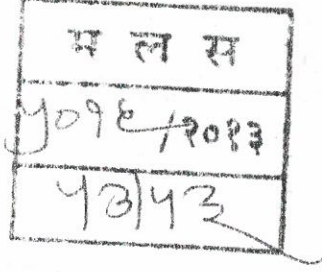 म ल स
५०१६/२०१३
५३/५३